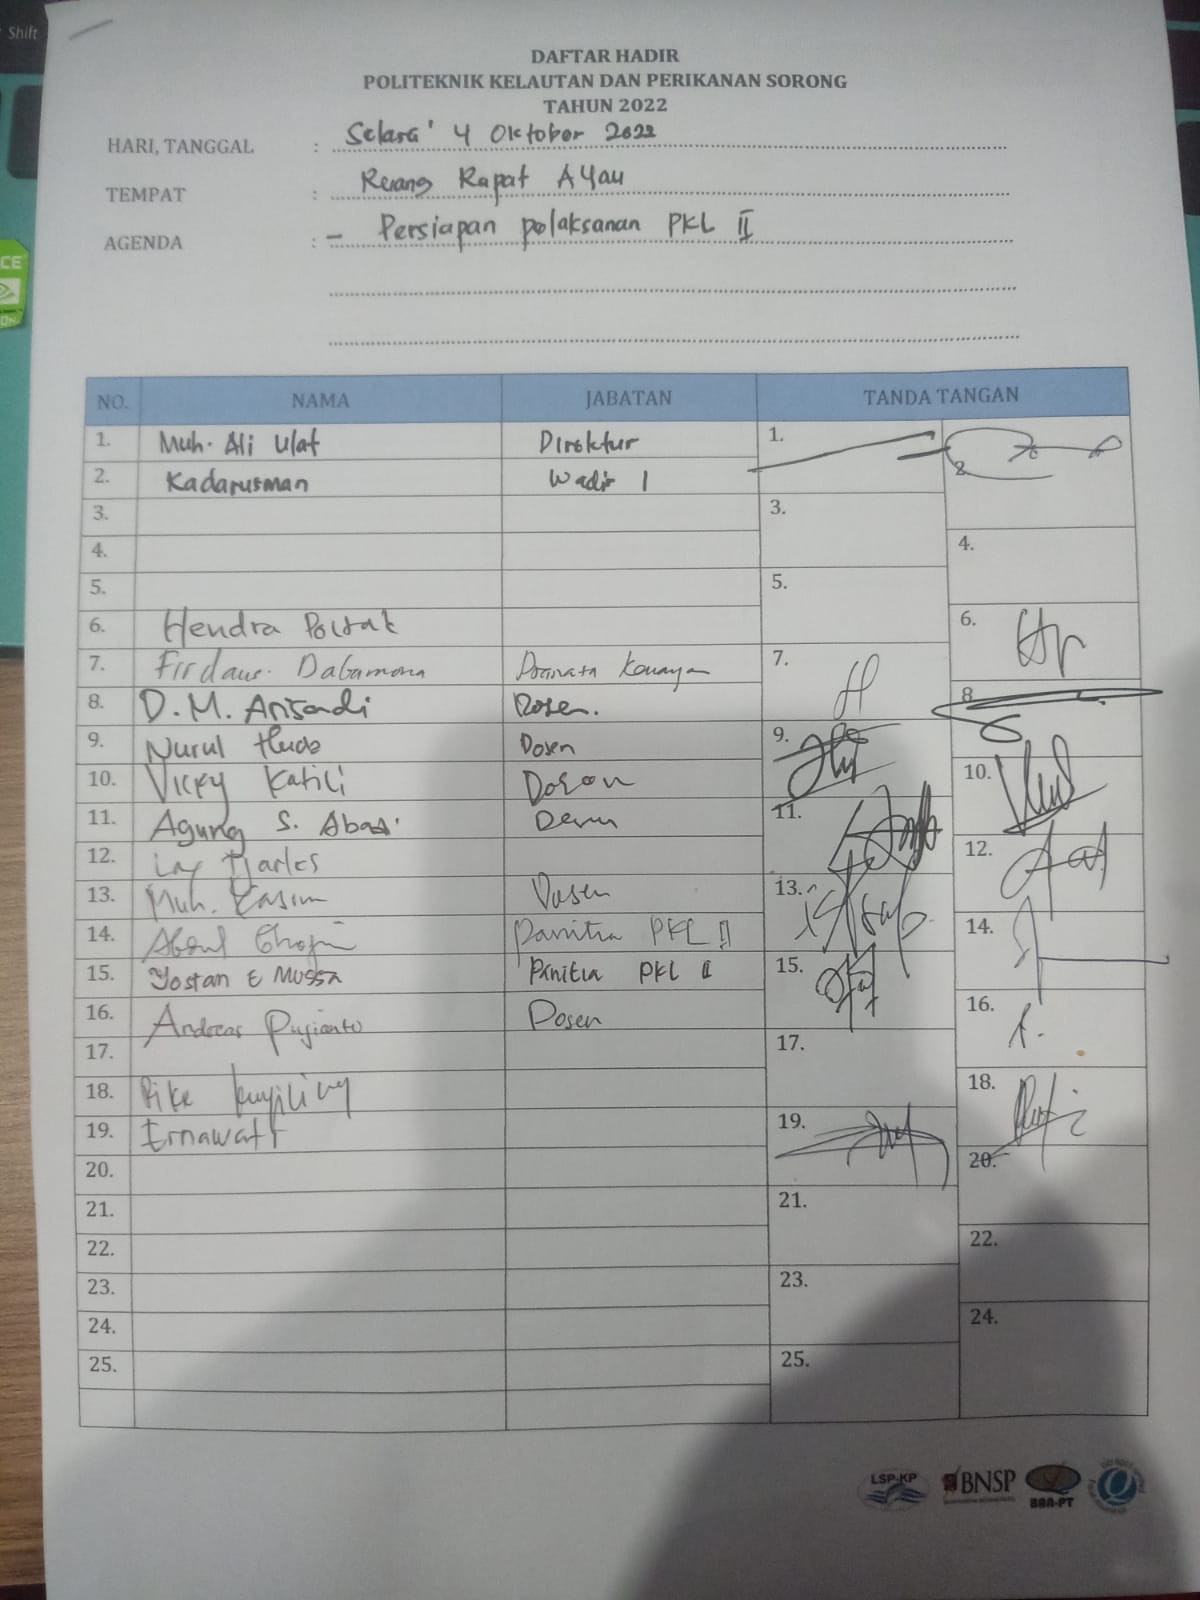 Shift
CE
DAFTAR HADIR
POLITEKNIK KELAUTAN DAN PERIKANAN SORONG
TAHUN 2022
HARI, TANGGAL : Selasa' 4 Oktober 2022
TEMPAT : Ruang Rapat Ayau
AGENDA : - Persiapan polaksanan PKL II
NO. NAMA JABATAN TANDA TANGAN
1. Muh. Ali Ulat Direktur 1.
2. Kadarusman Wadir 1 2.
3. 3.
4. 4.
5. 5.
6. Hendra Poltak 6.
7. Firdaus. Dabamona 7.
8. D. M. Arisandi Dosen. 8.
9. Nurul Huda Dosen 9.
10. Vicky Katili Dosen 10.
11. Agung S. Abadi Dosen 11.
12. 12.
13. Muh. Kasim Dosen 13.
14. Abdul Ghofir Panitia PKL II 14.
15. Yostan E Mussa Panitia PKL II 15.
16. Andreas Pujianto Dosen 16.
17. 17.
18. 18.
19. Ernawati 19.
20. 20.
21. 21.
22. 22.
23. 23.
24. 24.
25. 25.
LSP-KP BNSP BAN-PT